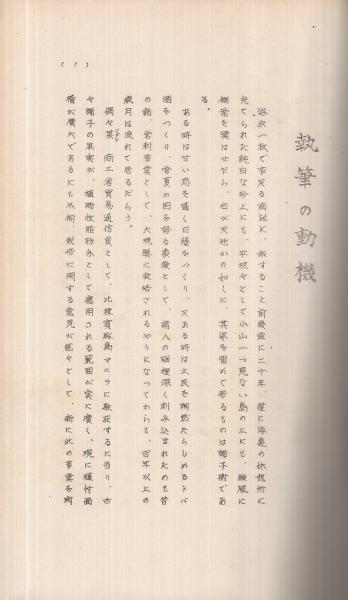 執筆の動機
浴衣一枚で事足る南洋に、旅すること前後旣に二十年、僅に海亀の休憩所に
充てられた純白な砂上にも、平坦々として小山一つ見ない島の上にも、緑風に
樹葉を漂はせ乍ら、己が天地かの如くに、其姿を留めて居るものは椰子樹であ
る。
ある時は甘い恋を囁く日蔭をつくり、又ある時は土民を陶然たらしめるトバ
酒をつくり、常夏の国を語る表徴として、諸人の脳裡深く刻み込まれたのも昔
の話、営利事業として、大規模に栽培されるやうになつてからも、百年以上の
歳月は流れて居るだらう。
偶々某 商工省貿易通信員として、比律賓群島マニラに駐在するに当り、古
々椰子の果実が、植物性脂肪分として応用される範囲が実に広く、現に植付面
積が広大であるにも不拘、栽培に関する意見が区々として、新に此の事業を
(1)